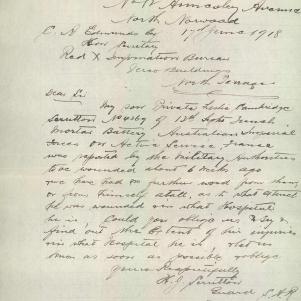 North Norwood
17 June 1918
C A Edmunds Esq
Hon Secretary
Red X Information Bureau
Verco Buildings
North Terrace
Dear Sir
My son Private Leslie Bainbridge
Scrutton of 13th Light Trench
Mortar Battery Australian Imperial
Forces on Active Service, France
was reported by the Military Authorities
to be wounded about 6 weeks ago
we have had no further word from them
or from himself stating as to what extent
he was wounded or in what Hospital
he is. Could you oblige us & try &
find out the Extent of his injuries
in what Hospital he is, & let us
know as soon as possible & oblige
Yours Respectfully
H. J. Scrutton
Guard S.A.R.